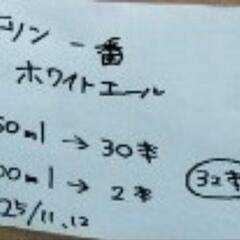 リン一番
ホワイトエール
50ml → 30本
00ml → 2本
32本
25/11.12